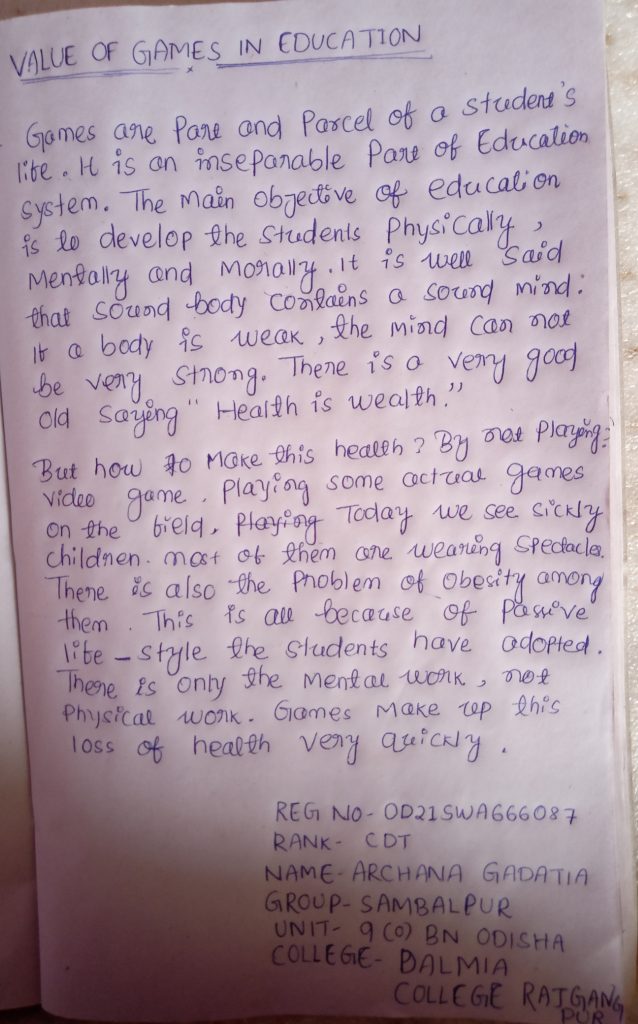 VALUE OF GAMES IN EDUCATION
Games are Part and Parcel of a student's
life. It is an inseparable Part of Education
system. The Main objective of education
is to develop the Students Physically,
Mentally and Morally. It is well Said
that sound body contains a sound mind.
If a body is weak, the mind Can not
be very strong. There is a very good
old saying "Health is wealth."
But how to Make this health? By not Playing
video game. Playing some actual games
on the field, Playing Today we see sickly
children. most of them are wearing spectacles.
There is also the Problem of obesity among
them. This is all because of Passive
life-style the students have adopted.
There is only the Mental work, not
Physical work. Games Make up this
loss of health very quickly.
REG NO- OD21SWA666087
RANK- CDT
NAME- ARCHANA GADATIA
GROUP- SAMBALPUR
UNIT- 9 (O) BN ODISHA
COLLEGE- DALMIA
COLLEGE RAJGANG
PUR